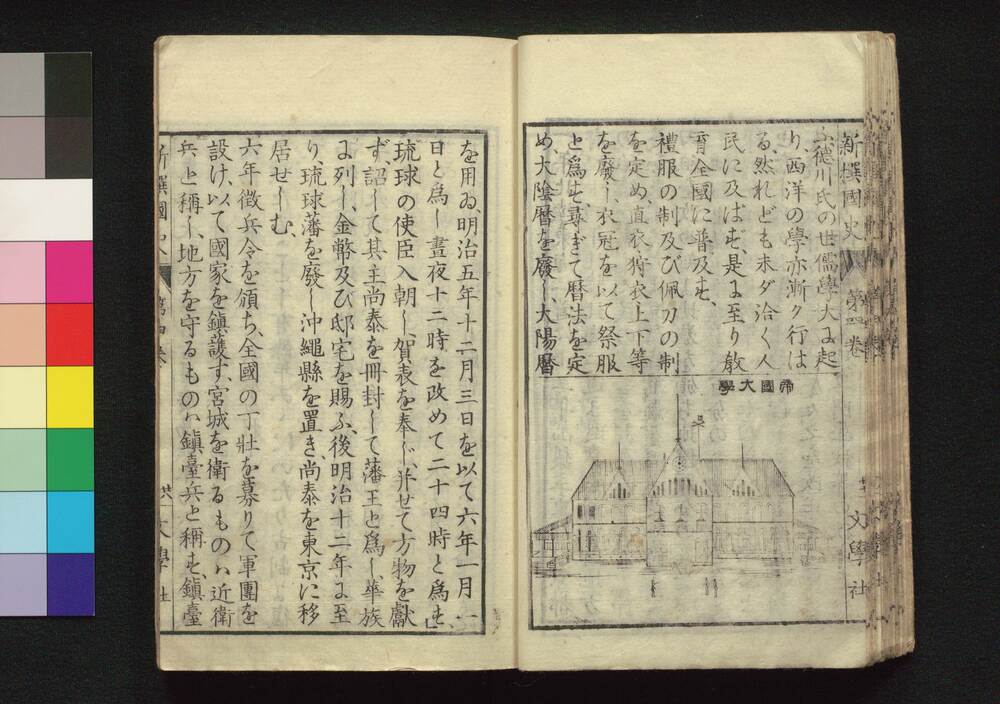 新撰國史 第四卷 文學社
ふ徳川氏の世儒學大に起
り、西洋の學亦漸ク行は
る、然れども未ダ洽く人
民に及はず、是に至り敎
育全國に普及す、
禮服の制及び佩刀の制
を定め、直衣狩衣上下等
を廢し衣冠を以て祭服
と爲す、尋ぎて曆法を定
め、大陰曆を廢し、大陽曆
帝國大學
を用ゐ、明治五年十二月三日を以て六年一月一
日と爲し晝夜十二時を改めて二十四時と爲す、
琉球の使臣入朝し、賀表を奉じ、幷せて方物を獻
ず、詔して其主尚泰を冊封して藩王と爲し、華族
に列し、金幣及び邸宅を賜ふ、後明治十二年に至
り、琉球藩を廢し沖繩縣を置き、尚泰を東京に移
居せしむ、
六年徵兵令を頒ち、全國の丁壯を募りて軍團を
設け、以て國家を鎭護す、宮城を衛るものハ近衛
兵と稱し、地方を守るものハ鎭臺兵と稱す、鎭臺
新撰國史 第四卷